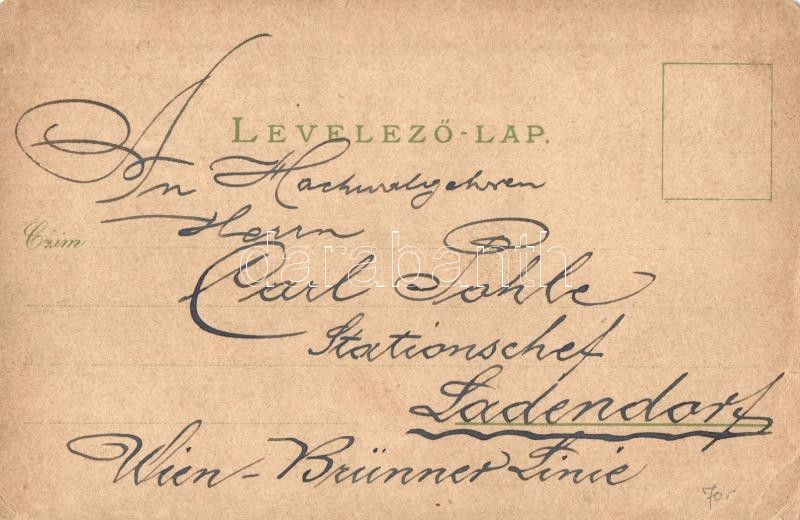 LEVELEZŐ-LAP.
An Hochwolgeboren
Herrn
Czim
Carl Pohle
darabanth
Stationschef
Ladendorf
Wien-Brünner Linie
70.-